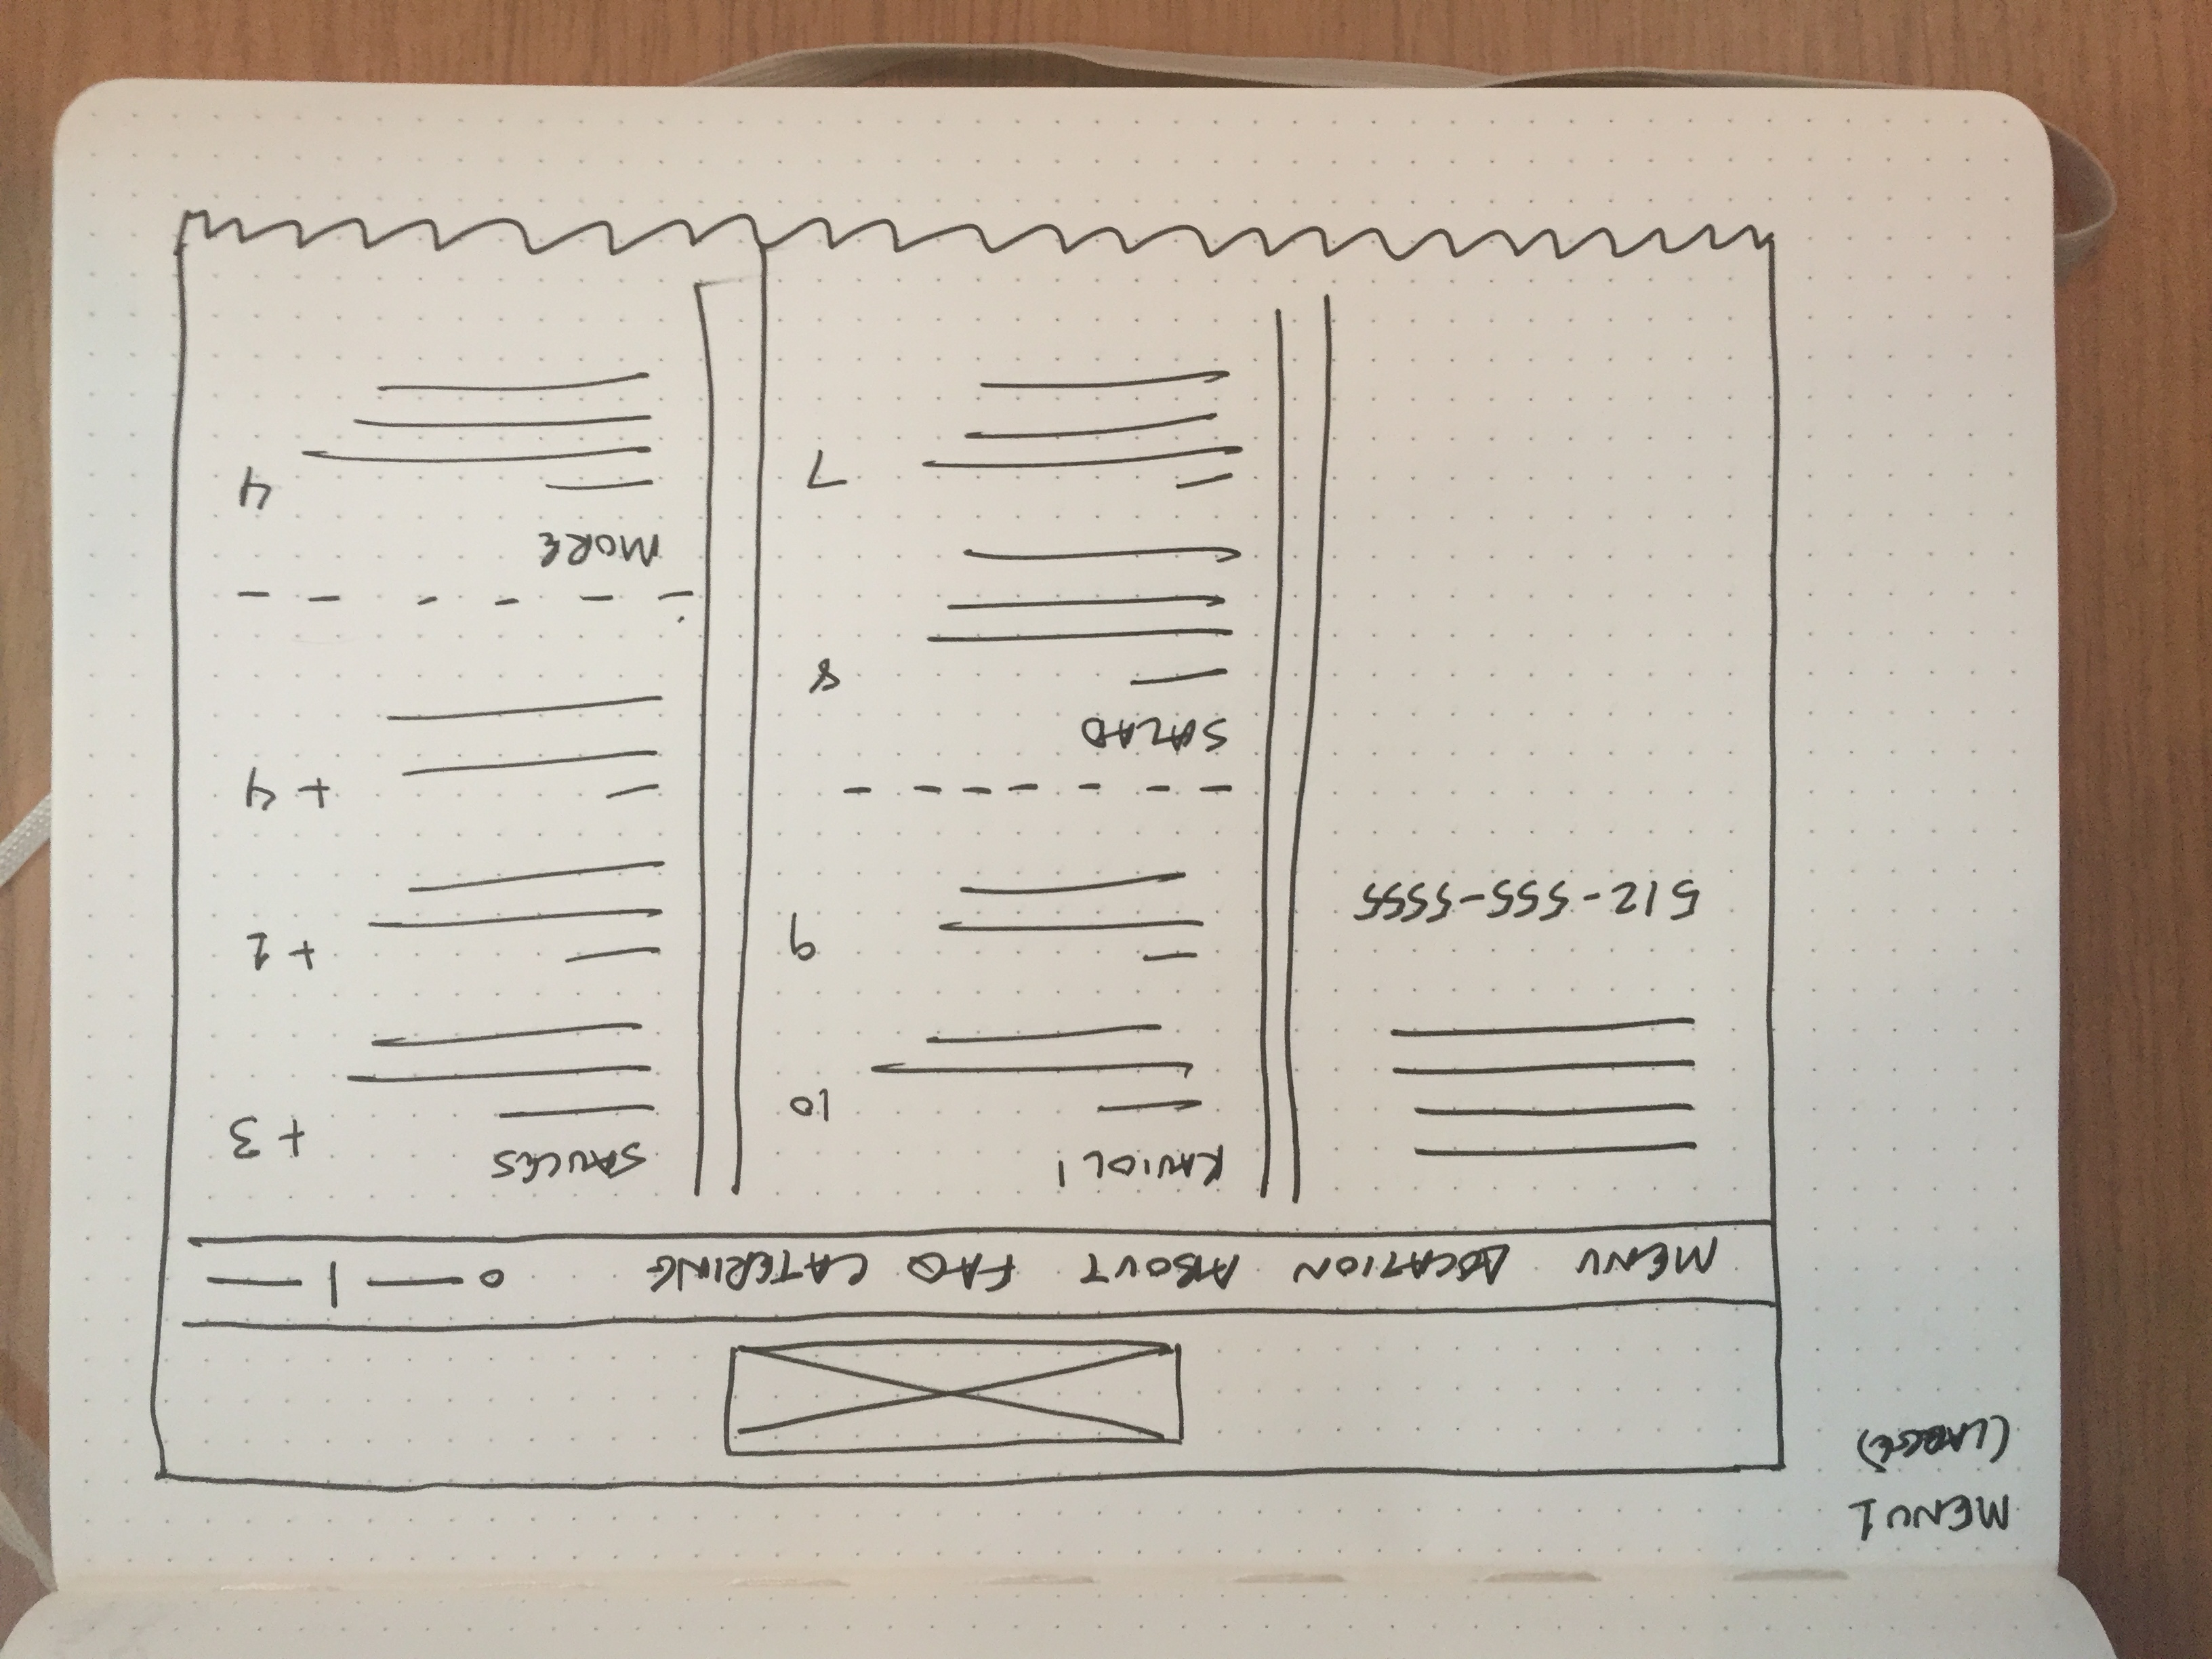 MENU 1
(LARGE)
MENU LOCATION ABOUT FAQ CATERING
512-555-5555
RAVIOLI
10
9
SALAD
8
7
SAUCES
+3
+1
+4
MORE
4